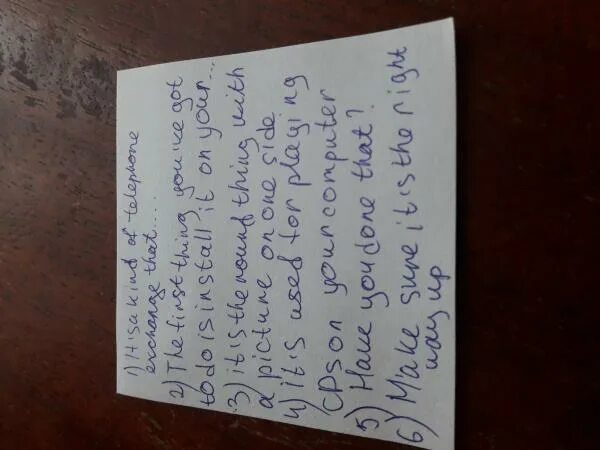 1) It is a kind of telephone
exchange that.....
2) The first thing you've got
to do is install it on your...
3) it is the round thing with
a picture on one side
4) it is used for playing
CDs on your computer
5) Have you done that?
6) Make sure it is the right
way up